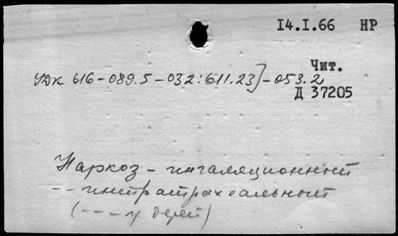 14.I.66 НР
Чит.
УДК 616-089.5-032:611.23]-053.2
Д 37205
Наркоз - ингаляционный
-- интратрахеальный
(--- у детей)